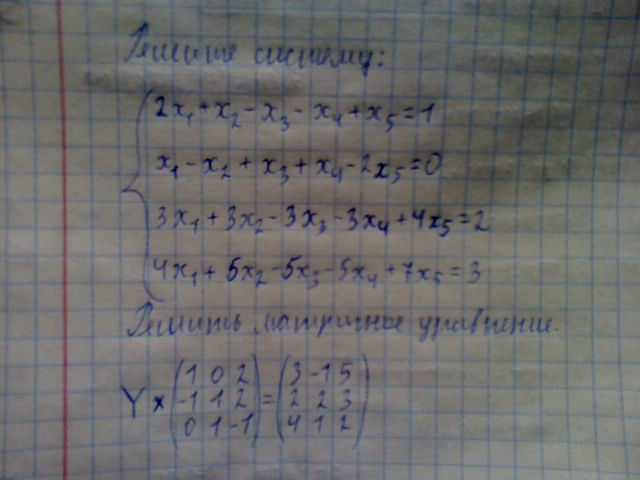 Решите систему:
2x₁+x₂-x₃-x₄+x₅=1
x₁-x₂+x₃+x₄-2x₅=0
3x₁+3x₂-3x₃-3x₄+4x₅=2
4x₁+5x₂-5x₃-5x₄+7x₅=3
Решить матричное уравнение.
1 0 2 3 -1 5
Y × -1 1 2 = 2 2 3
0 1 -1 4 1 2